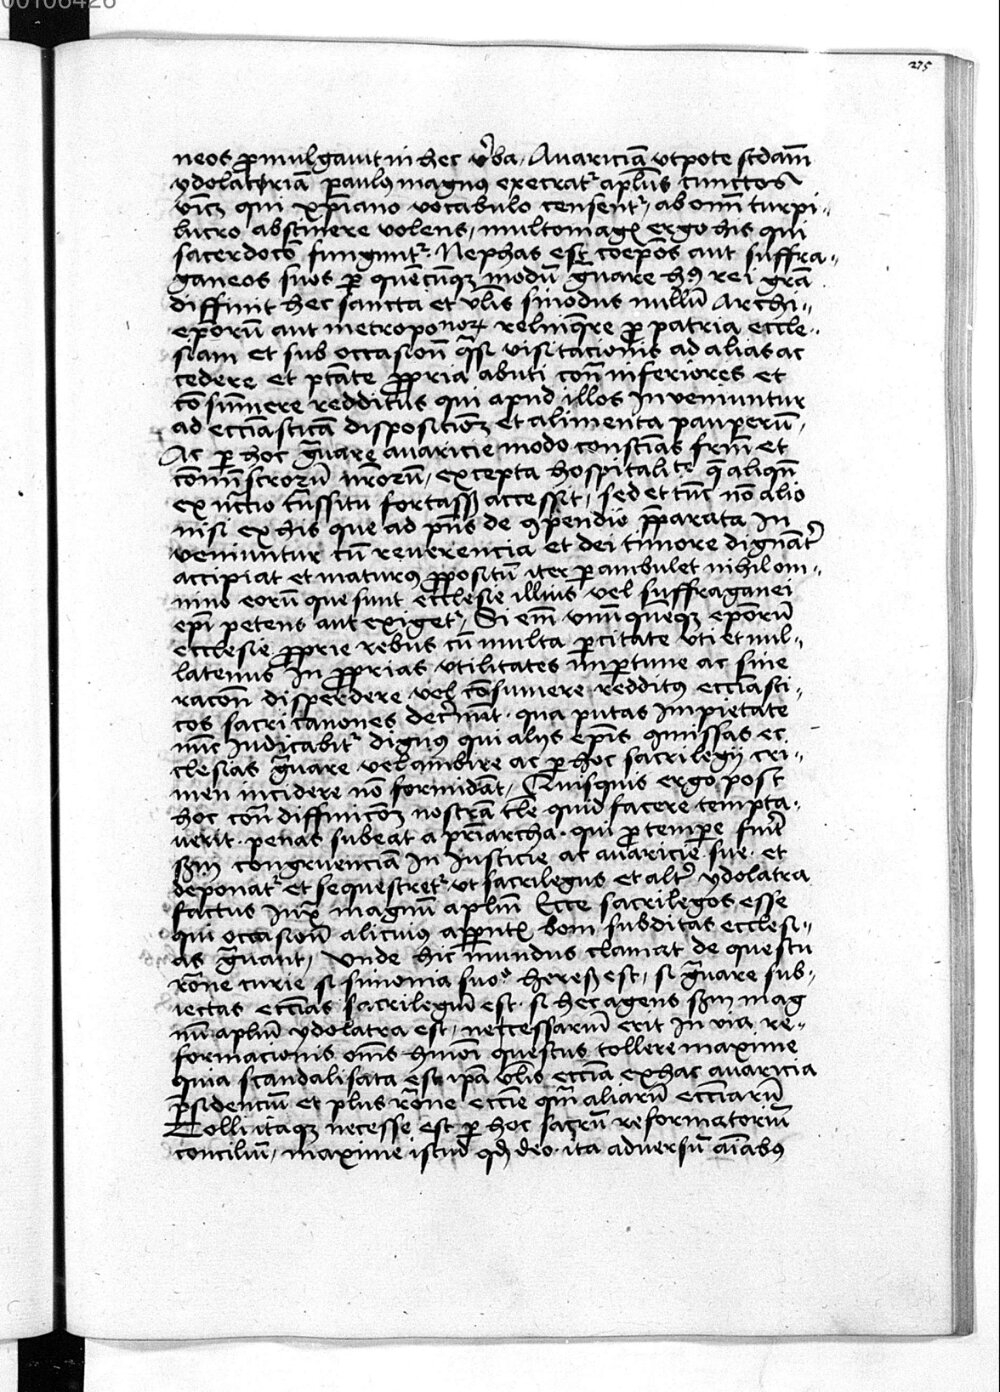 275
neos p̱mulgauit in hec v̓ba / Auariciā vtpote scd̄am
ydolatriā paulus magnus execrat᷑ apl̄us cunctos
vtiqȝ qui xp̄iano vocabulo censent᷑ / ab om̄i turpi-
lucro abstinere volens / multomagꝭ ergo his qui
sacerdoco funguntᷣ. Nephas est coep̄os aut suffra-
ganeos suos ꝑ quēcūqȝ modū g̃uare h9 rei gr̄a
diffinit hec sancta et vl̄is sinodus nullū Archi-
ep̄orū aut metroponorꝝ relinq̄re p̱ patria eccle-
siam et sub occasion̄ q̃si visitacionis ad alias ac
cedere et pt̄ate p̱pria abuti con̄ inferiores et
cōsūmere redditus qui apud illos Inveniuntur
ad ecc̄iasticā disposicioēȝ et alimenta pauperū /
Ac ꝑ hoc g̃uare auaricie modo consc̄ias fr̄m et
com̄iscrorū nr̄orū / excepta hospitalite q̄ aliqn̄
ex nc̄cio t̄nssitu fortassȝ accesserit / sed et tūc nō alio
nisi ex his que ad pn̄s de ꝯpendio p̄parata In
veniuntur cū reuerencia et dei timore dignāt᷑
accipiat et maturꝯ p̱positū iter ꝑambulet nihilom-
nino eorū que sunt ecclesie illius vel suffraganei
ep̄i petens aut exiget᷑ / Si em̄ vnū quēqȝ ep̄orū
ecclesie p̱prie rebus cū multa ꝑcitate vti et nul-
latenus in p̱prias vtilitates inꝑtune ac sine
racon̄ disperdere vel cōsumere redditꝯ ecc̄iasti-
cos sacri canones dec̓nūt . qua putas Impietate
nūc Iudicabit᷑ dignꝯ qui alijs ep̄is ꝯmissas ec
clesias g̃uare vel ambire ac ꝑ hoc sacrilegij cri-
men incidere nō formidāt / Quisquis ergo post
hoc con̄ diffinicōȝ nostrā tl̄e quid facere tempta-
uerit . penas subeat a pr̄iarcha . qui p̱ tempe fu̓it
sȝm congruenciā In Iusticie ac auaricie sue . et
deponat᷑ et sequestret᷑ . vt sacrilegus et alt̓ ydolatra
factus Iuxͣ magnū apl̄m Ecce sacrilegos esse
qui occasion̄ alicuius appn̄tꝭ boni subditas ecclesi-
as g̃uant / Vnde hic mundus clamat de questu
rōne curie si simonia suoᵒ heresȝ est / si g̃uare sub-
iectas ecc̄ias sacrilegiū est . si hec agens sȝm mag
nū aplūm ydolatra est / neccessariū erit in via re-
formacionis om̄s hm̄oi questus tollere maxime
quia scandalisata est ip̄a vl̄is ecc̄ia ex hac auaricia
p̄sidenciū et plus rōne ecc̄ie qm̄ aliarū ecc̄iarū
Tolli itaqȝ necesse est ꝑ hoc sacrū reformatoriū
conciliū / maxime istud qd̄ deo . ita adversū aīabꝯ